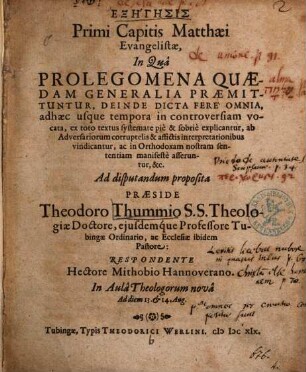 ΕΞΗΓΗΣΙΣ
Primi Capitis Matthæi
Evangelistæ,
In Quâ
PROLEGOMENA QUÆ-
DAM GENERALIA PRÆMIT-
TUNTUR, DEINDE DICTA FERE OMNIA,
adhæc usque tempora in controversiam vo-
cata, ex toto textus systemate piè & sobriè explicantur, ab
Adversariorum corruptelis & affictis interpretationibus
vindicantur, ac in Orthodoxam nostram sen-
tentiam manifestè asserun-
tur, &c.
Ad disputandum proposita
PRÆSIDE
Theodoro Thummio S.S. Theolo-
giæ Doctore, ejusdemque Professore Tu-
bingæ Ordinario, ac Ecclesiæ ibidem
Pastore:
RESPONDENTE
Hectore Mithobio Hannoverano.
In Aulâ Theologorum novâ
Ad diem 13. & 14. Aug.
Tubingæ, Typis THEODORICI WERLINI. cIɔ Iɔc XIX.